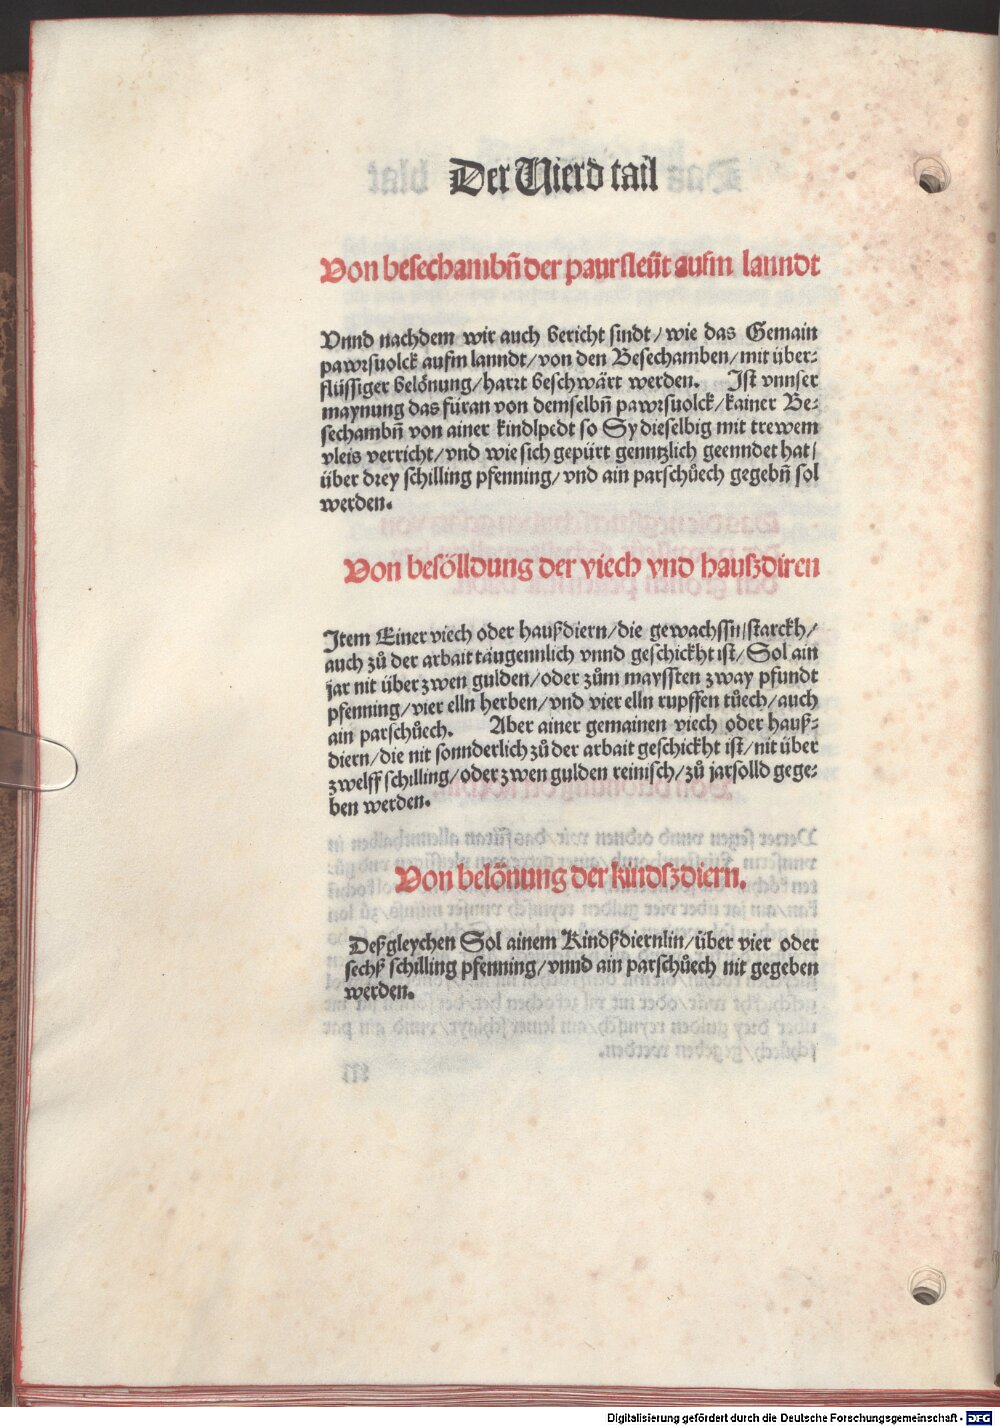 Der Vierd tail
Von besechambn̄ der paursleu̇t aufm lanndt
Vnnd nachdem wir auch bericht sindt/ wie das Gemain
pawrsuolck aufm lanndt/ von den Besechamben/ mit über-
flüssiger belönung/ hartt beschwärt werden. Ist vnnser
maynung das füran von demselbn̄ pawrsuolck/ kainer Be-
sechambn̄ von ainer kindlpedt so Sy dieselbig mit trewem
vleis verricht/ vnd wie sich gepürt genntzlich geenndet hat/
über drey schilling pfenning/ vnd ain parschůech gegebn̄ sol
werden.
Von besölldung der viech vnd hauszdiren
Item Einer viech oder haußdiern/ die gewachssn/ starckh/
auch zů der arbait taugennlich vnnd geschickht ist/ Sol ain
jar nit über zwen gulden/ oder zům mayssten zway pfundt
pfenning/ vier elln herben/ vnd vier elln rupffen tůech/ auch
ain parschůech. Aber ainer gemainen viech oder hauß-
diern/ die nit sonnderlich zů der arbait geschickht ist/ nit über
zwelff schilling/ oder zwen gulden reinisch/ zů jarsolld gege-
ben werden.
Von belönung der kindszdiern.
Deßgleychen Sol ainem Kindßdiernlin/ über vier oder
sechß schilling pfenning/ vnnd ain parschůech nit gegeben
werden.
Digitalisierung gefördert durch die Deutsche Forschungsgemeinschaft - DFG